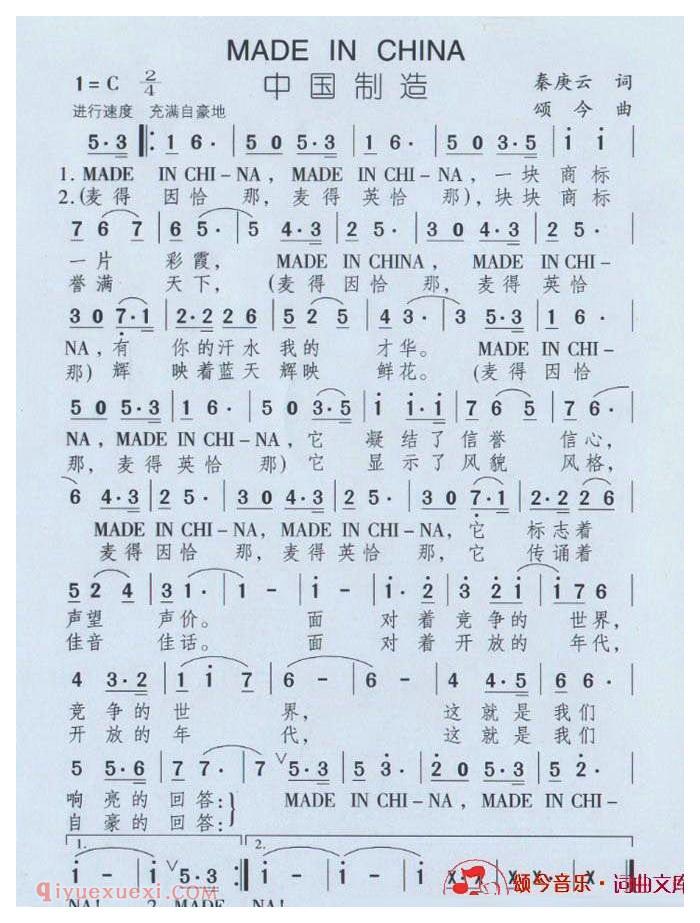 MADE IN CHINA
1=C 2/4 中国制造 秦庚云 词
进行速度 充满自豪地 颂今 曲
5·3 ‖: 1 6· | 5 0 5·3 | 1 6· | 5 0 3·5 | i i |
1. MADE IN CHI-NA, MADE IN CHI-NA, 一块商标
2.(麦得因恰那, 麦得英恰那),块块商标
7 6 7 | 6 5· | 5 4·3 | 2 5· | 3 0 4·3 | 2 5· |
一片彩霞, MADE IN CHINA, MADE IN CHI-
誉满天下, (麦得因恰那, 麦得英恰
3 0 7·1 | 2·2 2 6 | 5 2 5 | 4 3· | 3 5·3 | 1 6· |
NA,有你的汗水我的才华。 MADE IN CHI-
那) 辉映着蓝天辉映鲜花。 (麦得因恰
5 0 5·3 | 1 6· | 5 0 3·5 | i i·i | 7 6 5 | 7 6· |
NA, MADE IN CHI-NA, 它凝结了信誉信心,
那, 麦得英恰那) 它显示了风貌风格,
6 4·3 | 2 5· | 3 0 4·3 | 2 5· | 3 0 7·1 | 2·2 2 6 |
MADE IN CHI-NA, MADE IN CHI-NA, 它标志着
麦得因恰那, 麦得英恰那, 它传诵着
5 2 4 | 3 1· | 1 - | i - | i· 2 | 3 2 i | i 7 6 |
声望声价。 面对着竞争的世界,
佳音佳话。 面对着开放的年代,
4 3·2 | i i 7 | 6 - | 6 - | 4 4·5 | 6 6· |
竞争的世界, 这就是我们
开放的年代, 这就是我们
5 5·6 | 7 7· | 7 V 5·3 | 5 3· | 2 0 5·3 | 5 2· |
响亮的回答:} MADE IN CHI-NA, MADE IN CHI-
自豪的回答:
1. 2.
i - | i V 5·3 :‖ i - | i - | x x· | x
颂今音乐·词曲文库
qiyuexuexi.com
NA! 2. MADE NA!